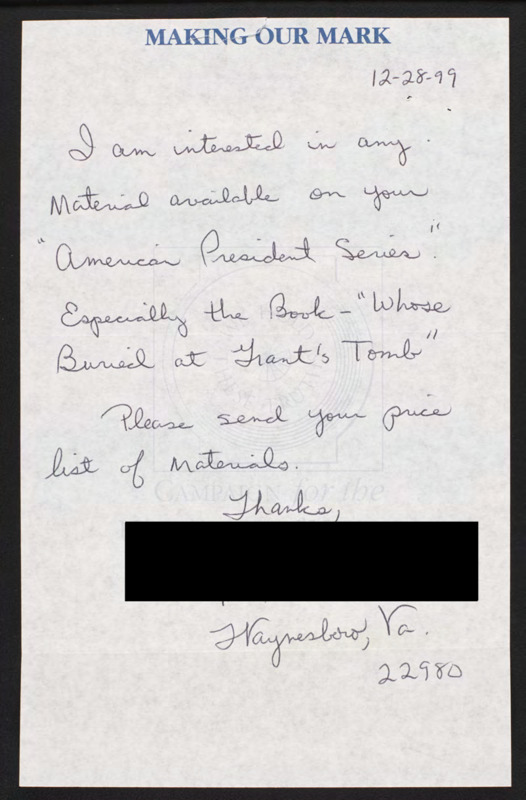 MAKING OUR MARK
12-28-99
I am interested in any
Material available on your
"American President Series".
Especially the Book - "Whose
Buried at Grant's Tomb"
Please send your price
list of materials.
CAMPAIGN for the
Thanks,
Waynesboro, Va.
22980